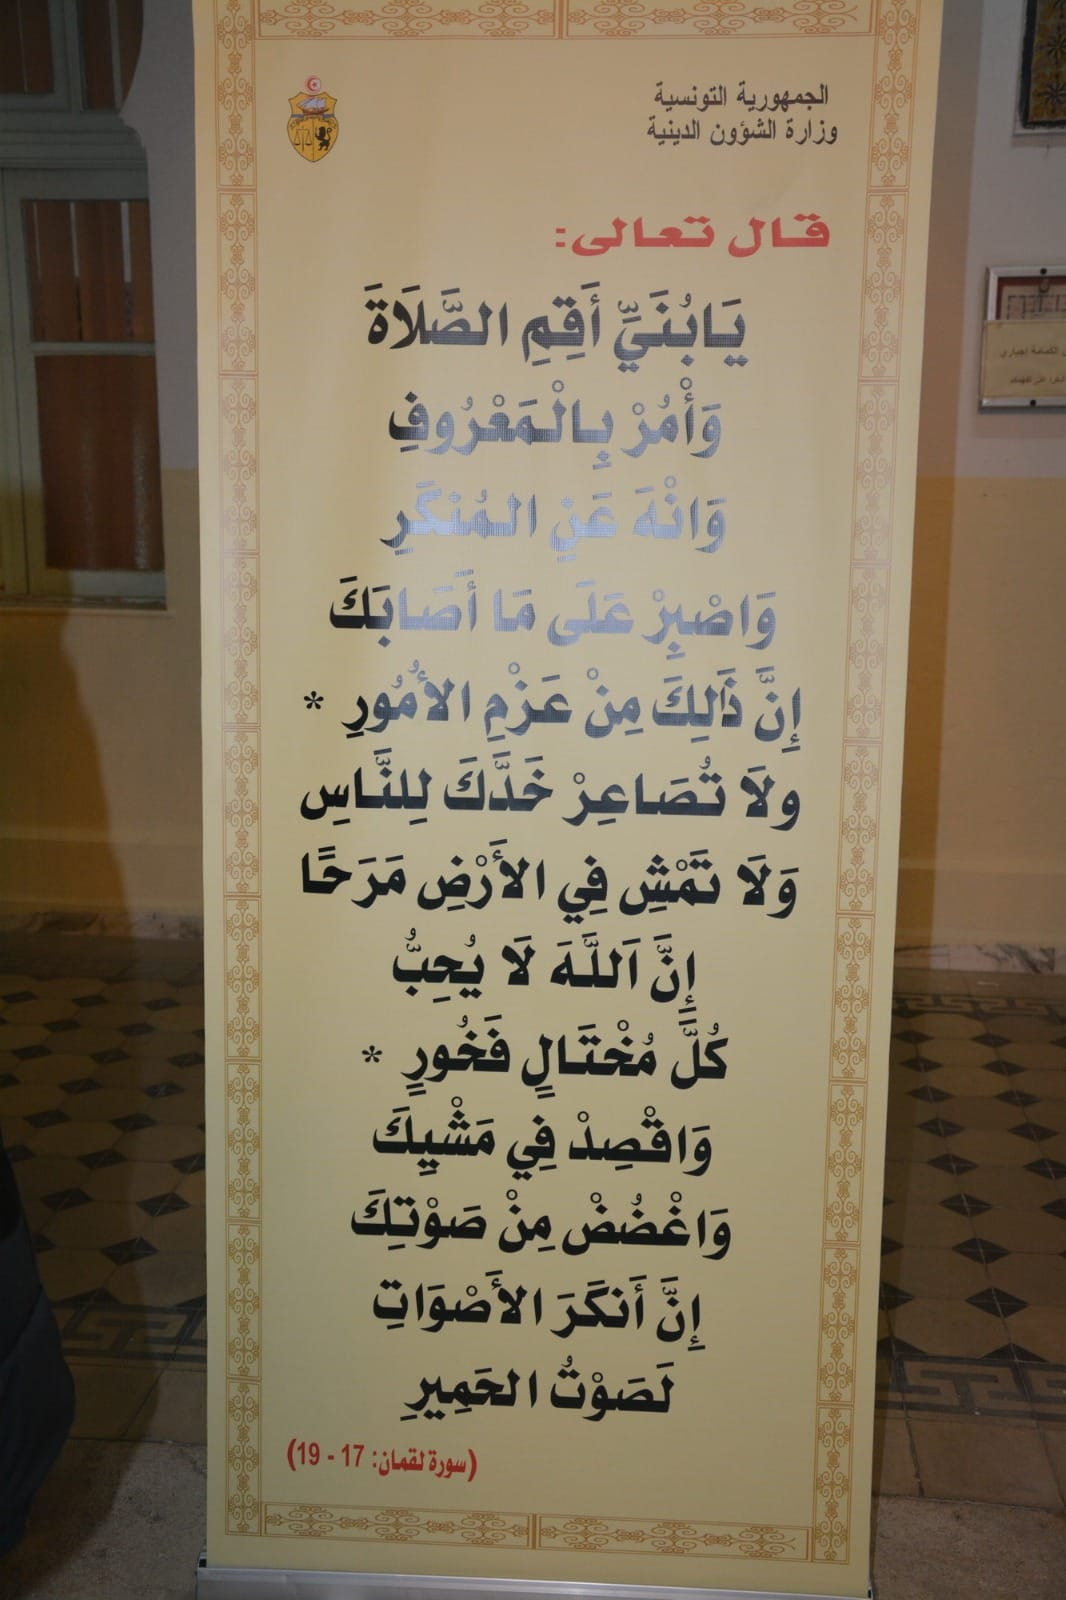 الجمهورية التونسية
وزارة الشؤون الدينية
قال تعالى:
يَابُنَيِّ أَقِمِ الصَّلَاةَ
وَأْمُرْ بِالْمَعْرُوفِ
وَانْهَ عَنِ المُنكَرِ
وَاصْبِرْ عَلَى مَا أَصَابَكَ
إِنَّ ذَلِكَ مِنْ عَزْمِ الأُمُورِ *
ولَا تُصَاعِرْ خَدَّكَ لِلنَّاسِ
وَلَا تَمْشِ فِي الأَرْضِ مَرَحًا
إِنَّ اَللَّهَ لَا يُحِبُّ
كُلَّ مُخْتَالٍ فَخُورٍ *
وَاقْصِدْ فِي مَشْيِكَ
وَاغْضُضْ مِنْ صَوْتِكَ
إِنَّ أَنكَرَ الأَصْوَاتِ
لَصَوْتُ الحَمِيرِ
(سورة لقمان: 17 - 19)
الكمامة إجباري